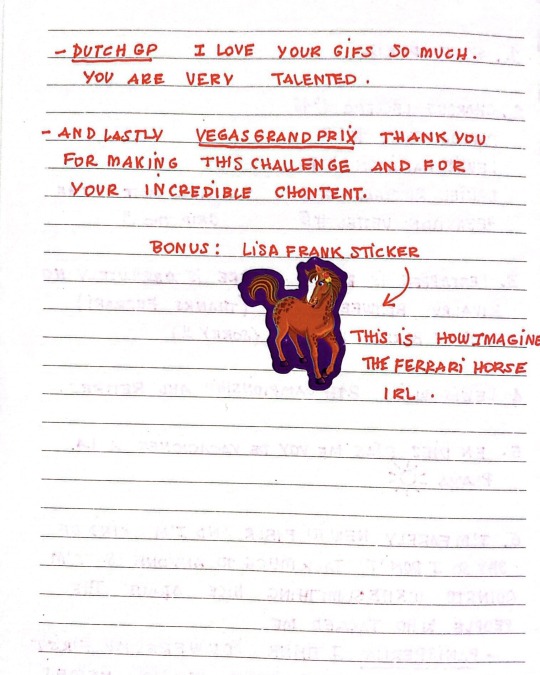 - DUTCH GP I LOVE YOUR GIFS SO MUCH.
YOU ARE VERY TALENTED.
- AND LASTLY VEGAS GRAND PRIX THANK YOU
FOR MAKING THIS CHALLENGE AND FOR
YOUR INCREDIBLE CHONTENT.
BONUS: LISA FRANK STICKER
THIS is HOW IMAGINE
THE FERRARI HORSE
IRL.